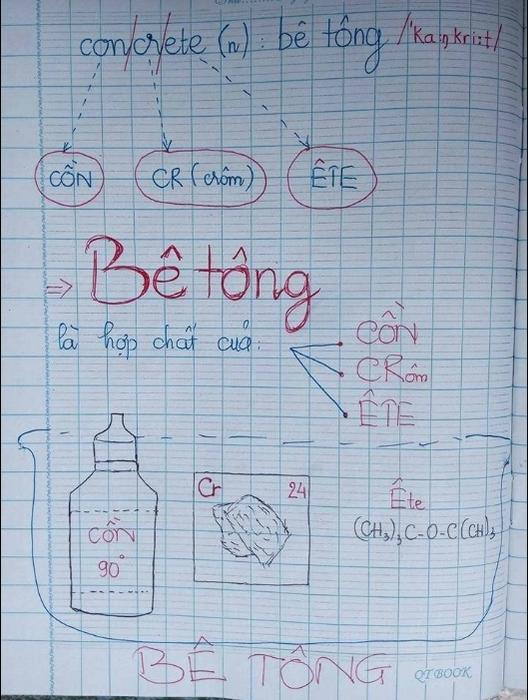 con/cr/ete (n) : bê tông /'kaŋkri:t/
CỒN CR (crôm) ÊTE
⇒ Bê tông
là hợp chất của:
CỒN
CRôm
ÊTE
Cr 24
CỒN
90°
Ête
(CH₃)₃C-O-C(CH)₃
BÊ TÔNG
QTBOOK